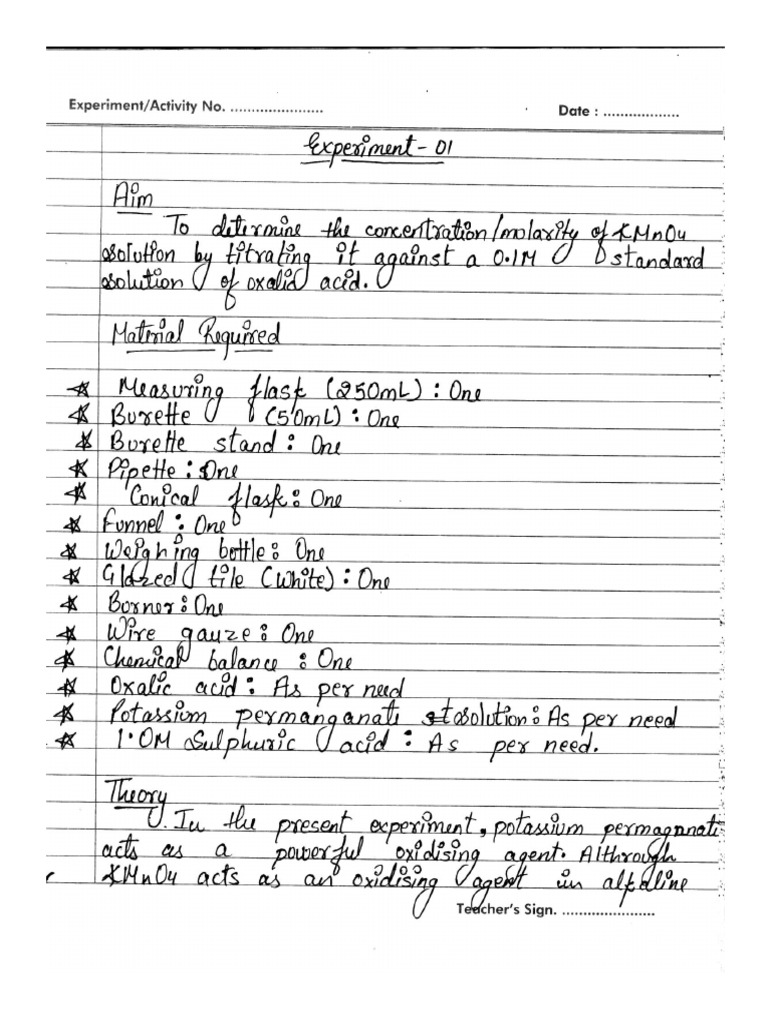 Experiment/Activity No. ......................
Date : ..................
Experiment - 01
Aim
To determine the concentration/molarity of KMnO4
solution by titrating it against a 0.1M standard
solution of oxalic acid.
Material Required
Measuring flask (250mL) : One
Burette (50mL) : One
Burette stand : One
Pipette : One
Conical flask : One
Funnel : One
Weighing bottle : One
Glazed tile (White) : One
Borner : One
Wire gauze : One
Chemical balance : One
Oxalic acid : As per need
Potassium permanganate solution : As per need
1.0M Sulphuric acid : As per need.
Theory
1. In the present experiment, potassium permagnnate
acts as a powerful oxidising agent. Althrough
KMnO4 acts as an oxidising agent in alkaline
Teacher's Sign. ......................